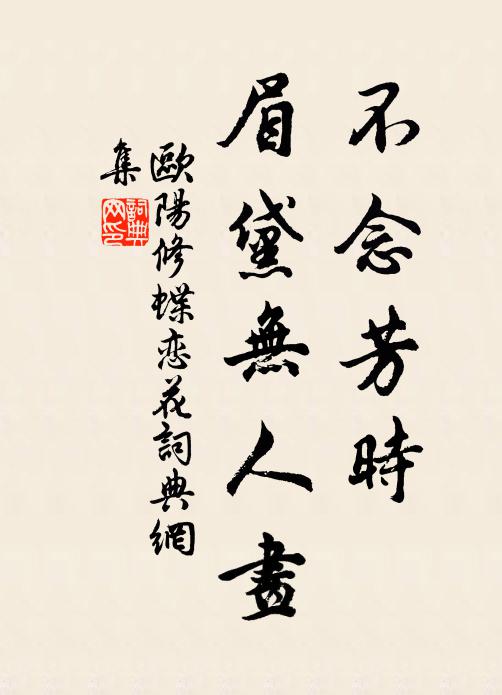 不念芳時
眉黛無人畫
歐陽修蝶恋花詞典網
集
詞典
网印